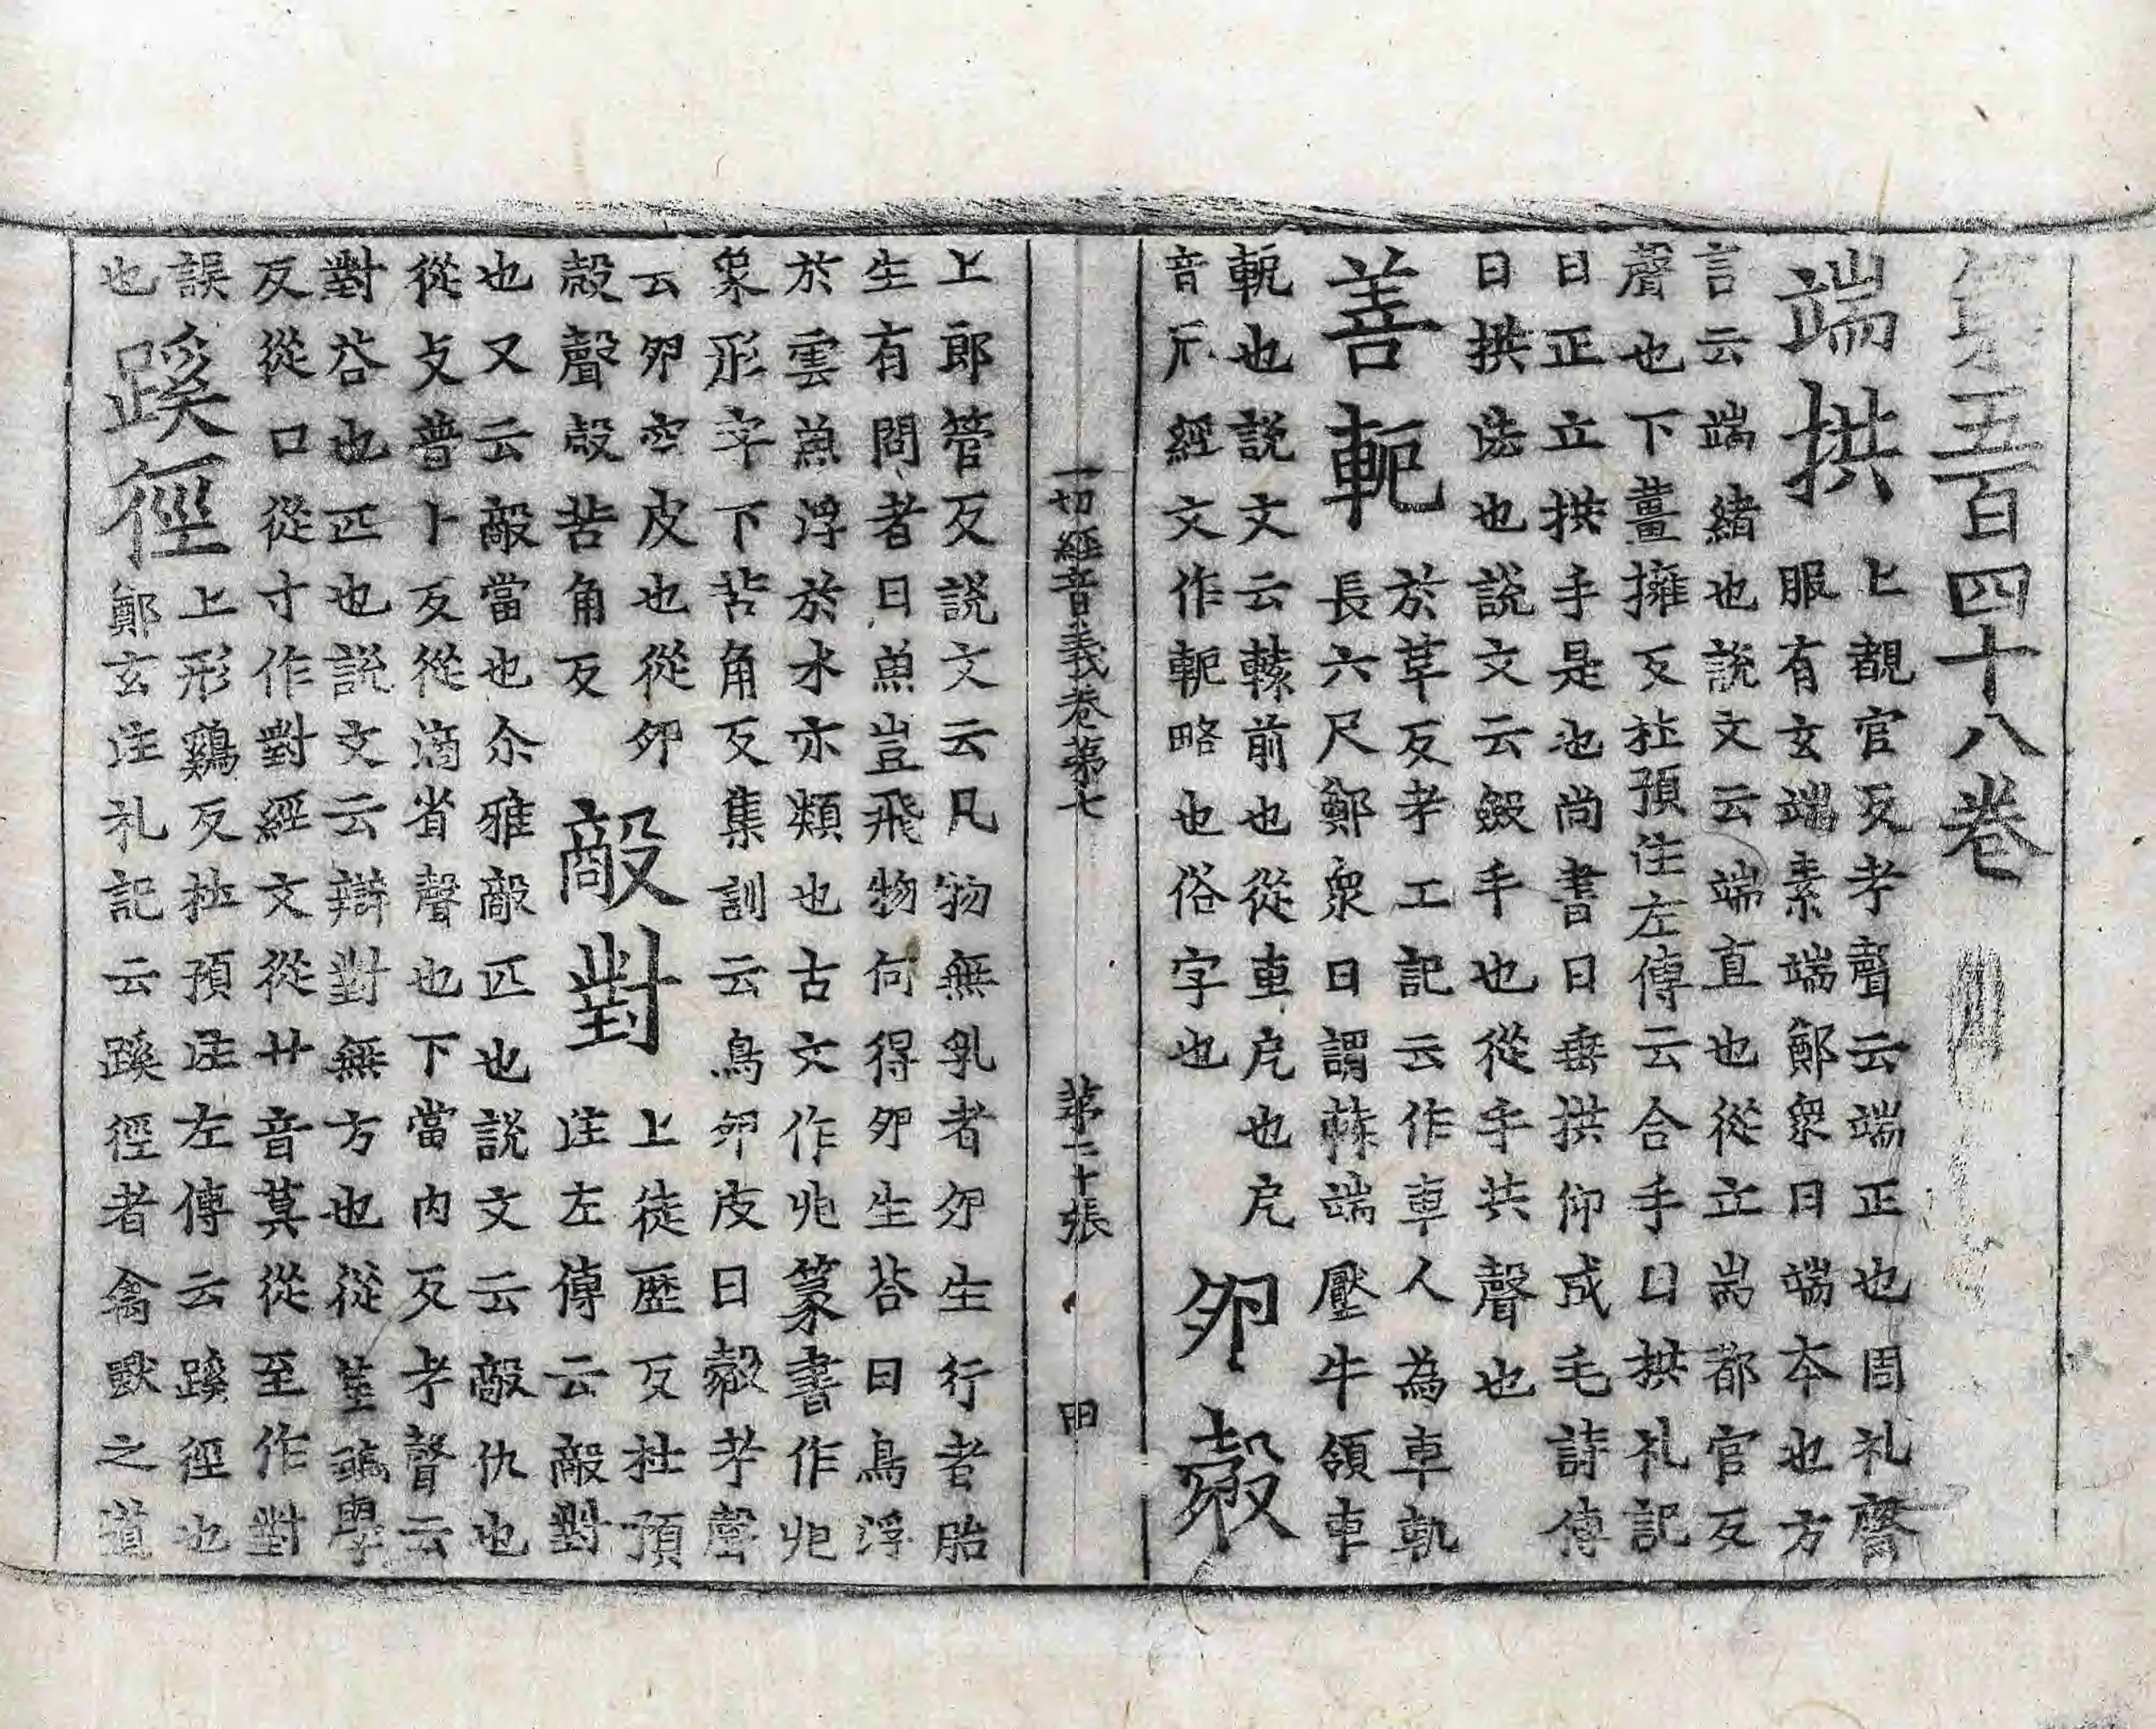 第五百四十八卷
端拱
上覩官反考聲云端正也周礼齋
服有玄端素端鄭衆曰端本也方
言云端緒也說文云端直也從立耑都官反
聲也下薑擁反杜預注左傳云合手曰拱礼記
曰正立拱手是也尚書曰垂拱仰成毛詩傳
曰拱法也說文云斂手也從手共聲也
善軶
於革反考工記云作車人為車軌
長六尺鄭衆曰謂轅端壓牛領車
軶也說文云轅前也從車戹也戹
音厄經文作軛略也俗字也
卵㲉
一切經音義卷第七 第二十張 甲
上郎管反說文云凡物無乳者卵生行者胎
生有問者曰魚豈飛物何得卵生荅曰鳥浮
於雲魚浮於水亦類也古文作𠁼篆書作𠁼
象形字下苦角反集訓云鳥卵皮曰㲉考聲
云卵空皮也從卵
㱿聲㱿苦角反
敵對
上徒歷反杜預
注左傳云敵對
也又云敵當也尒雅敵匹也說文云敵仇也
從攴普卜反從滴省聲也下當內反考聲云
對荅也匹也說文云辯對無方也從丵學
反從口從寸作對經文從廾音莫從至作對
誤
也
蹊徑
上形鷄反杜預注左傳云蹊徑也
鄭玄注礼記云蹊徑者禽獸之道